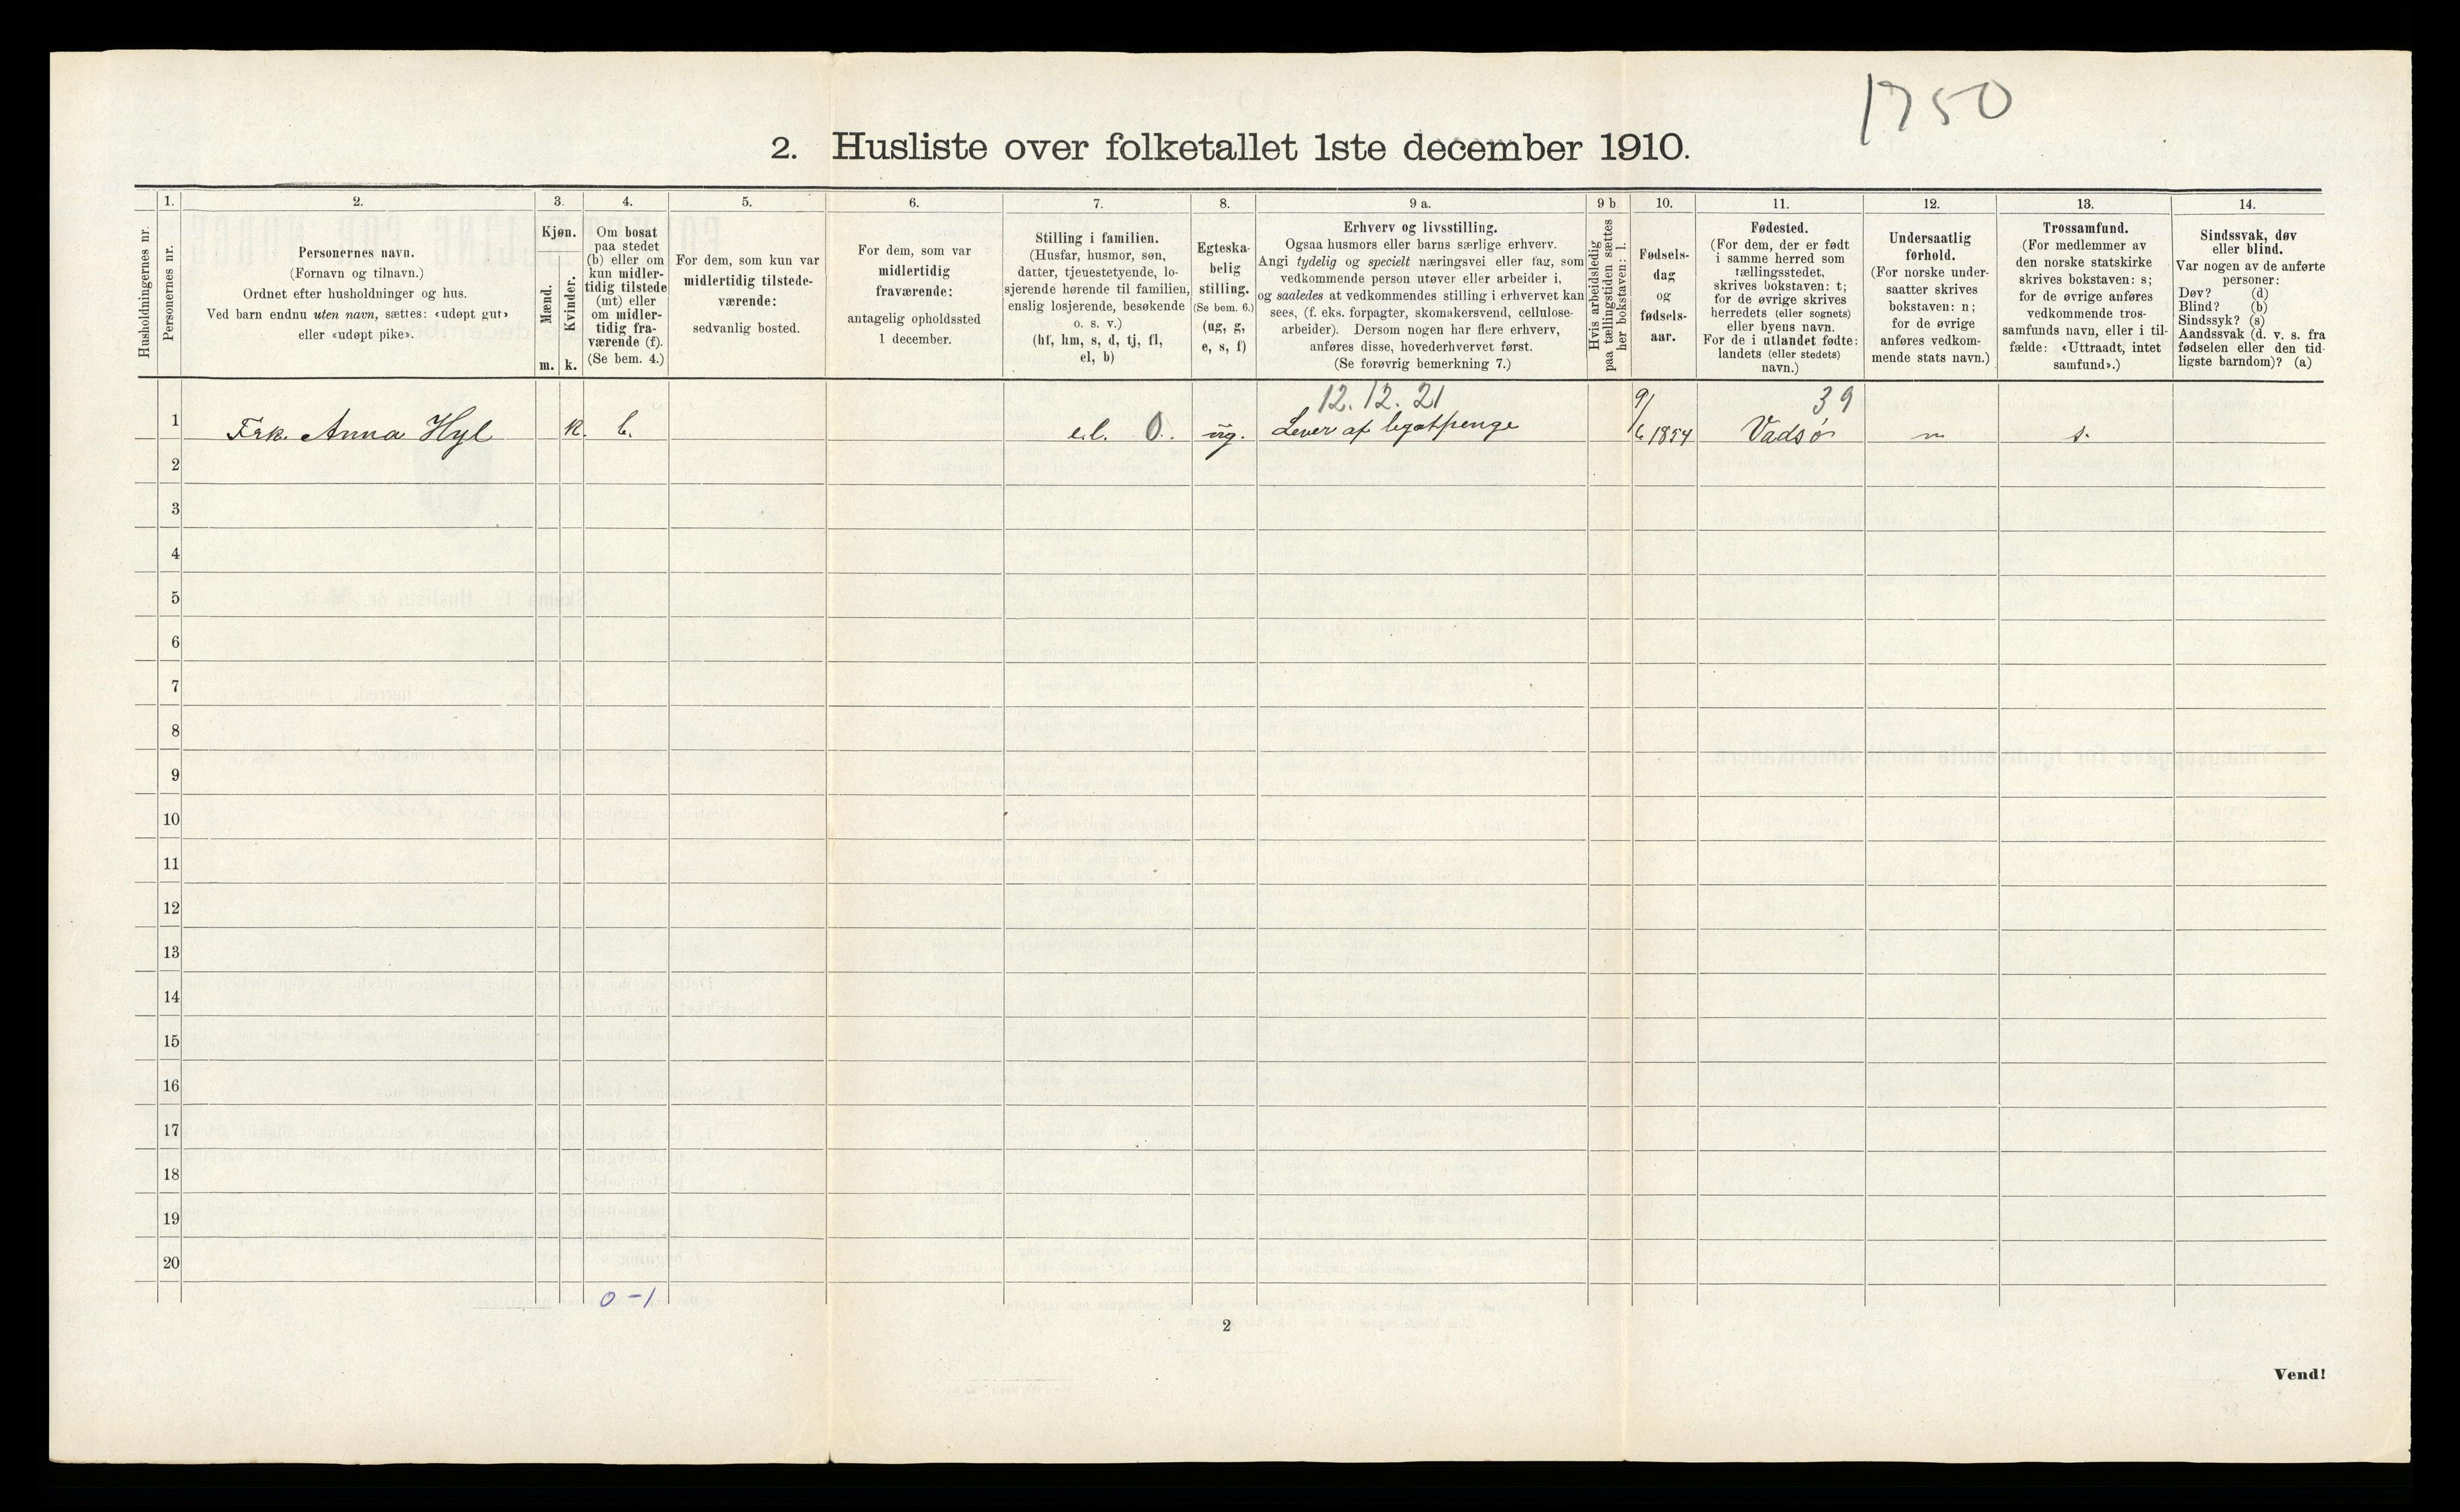 1750
2. Husliste over folketallet 1ste december 1910.
Husholdningernes nr.
1.
Personernes nr.
2.
Personernes navn.
(Fornavn og tilnavn.)
Ordnet efter husholdninger og hus.
Ved barn endnu uten navn, sættes: «udøpt gut»
eller «udøpt pike».
3.
Kjøn.
Mænd.
m.
Kvinder.
k.
4.
Om bosat
paa stedet
(b) eller om
kun midler-
tidig tilstede
(mt) eller
om midler-
tidig fra-
værende (f).
(Se bem. 4.)
5.
For dem, som kun var
midlertidig tilstede-
værende:
sedvanlig bosted.
6.
For dem, som var
midlertidig
fraværende:
antagelig opholdssted
1 december.
7.
Stilling i familien.
(Husfar, husmor, søn,
datter, tjenestetyende, lo-
sjerende hørende til familien,
enslig losjerende, besøkende
o. s. v.)
(hf, hm, s, d, tj, fl,
el, b)
8.
Egteska-
belig
stilling.
(Se bem. 6.)
(ug, g,
e, s, f)
9 a.
Erhverv og livsstilling.
Ogsaa husmors eller barns særlige erhverv.
Angi tydelig og specielt næringsvei eller fag, som
vedkommende person utøver eller arbeider i,
og saaledes at vedkommendes stilling i erhvervet kan
sees, (f. eks. forpagter, skomakersvend, cellulose-
arbeider). Dersom nogen har flere erhverv,
anføres disse, hovederhvervet først.
(Se forøvrig bemerkning 7.)
9 b
Hvis arbeidsledig
paa tællingstiden sættes
her bokstaven: l.
10.
Fødsels-
dag
og
fødsels-
aar.
11.
Fødested.
(For dem, der er født
i samme herred som
tællingsstedet,
skrives bokstaven: t;
for de øvrige skrives
herredets (eller sognets)
eller byens navn.
For de i utlandet fødte:
landets (eller stedets)
navn.)
12.
Undersaatlig
forhold.
(For norske under-
saatter skrives
bokstaven: n;
for de øvrige
anføres vedkom-
mende stats navn.)
13.
Trossamfund.
(For medlemmer av
den norske statskirke
skrives bokstaven: s;
for de øvrige anføres
vedkommende tros-
samfunds navn, eller i til-
fælde: «Uttraadt, intet
samfund».)
14.
Sindssvak, døv
eller blind.
Var nogen av de anførte
personer:
Døv? (d)
Blind? (b)
Sindssyk? (s)
Aandssvak (d. v. s. fra
fødselen eller den tid-
ligste barndom)? (a)
12. 12. 21
39
1 Frk. Anna Hyl k. b. e.l. 0. ug. Lever af legatpenge 9/6 1854 Vadsø n s.
2
3
4
5
6
7
8
9
10
11
12
13
14
15
16
17
18
19
20
0-1
2
Vend!